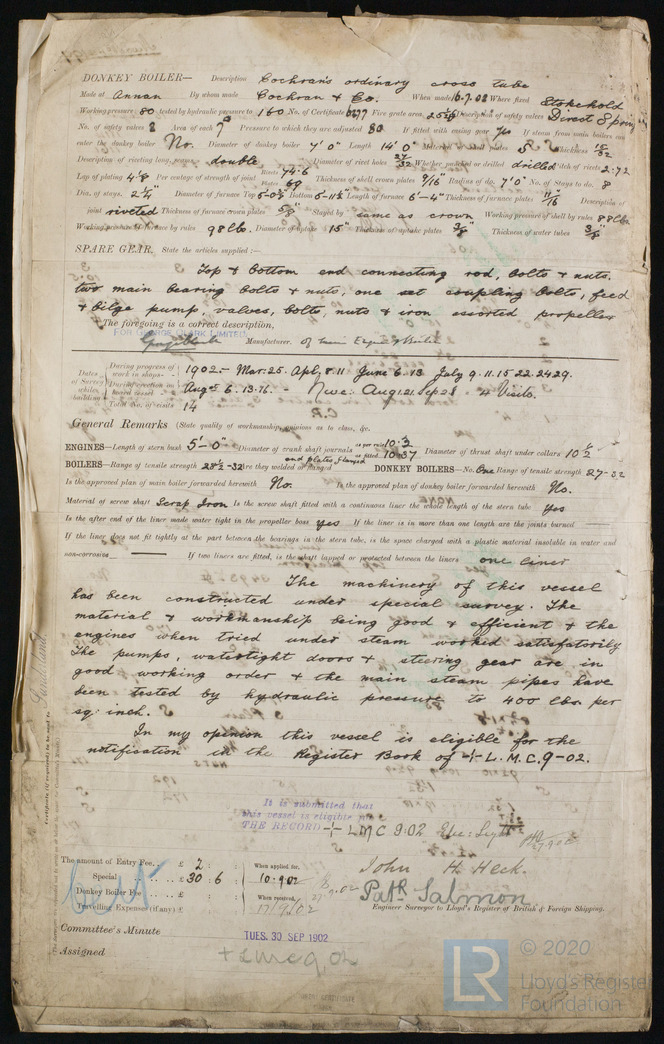 DONKEY BOILER— Description Cochran's ordinary cross tube
Made at Annan By whom made Cochran & Co. When made 16.7.02 Where fixed Stokehold
Working pressure 80 tested by hydraulic pressure to 160 No. of Certificate 6277 Fire grate area Description of safety valves Direct Spring
No. of safety valves 2 Area of each Pressure to which they are adjusted 80 If fitted with easing gear Yes If steam from main boilers can
enter the donkey boiler No. Diameter of donkey boiler 7' 0" Length 14' 0" Material of shell plates S Thickness
Description of riveting long. seams double Diameter of rivet holes 27/32 Whether punched or drilled drilled Pitch of rivets 2.72
Lap of plating 4 1/8 Per centage of strength of joint Rivets 74.6 Plates 69 Thickness of shell crown plates 9/16" Radius of do. 7'0" No. of Stays to do. 8
Dia. of stays. 2 1/4" Diameter of furnace Top Bottom Length of furnace 6'-4" Thickness of furnace plates 11/16 Description of
joint riveted Thickness of furnace crown plates 5/8" Stayed by same as crown Working pressure of shell by rules 88 lbs.
Working pressure of furnace by rules 98 lbs. Diameter of uptake 15" Thickness of uptake plates 3/8" Thickness of water tubes 3/8"
SPARE GEAR. State the articles supplied:—
Top & bottom end connecting rod, bolts & nuts.
two main bearing bolts & nuts, one set coupling bolts, feed
& bilge pump, valves, bolts, nuts & iron assorted, propeller
The foregoing is a correct description,
FOR GEORGE CLARK LIMITED
Manufacturer. of main Engines & Boilers
Dates of Survey while building
During progress of work in shops- - 1902.- Mar. 25. Apl. 8. 11 June 6. 13 July 9. 11. 15. 22. 24. 29.
During erection on board vessel - - Aug. 5. 6. 13. 16. - Nwc: Aug. 21. Sep. 23 4 Visits.
Total No. of visits 14
General Remarks (State quality of workmanship, opinions as to class, &c.
ENGINES—Length of stern bush 5'-0" Diameter of crank shaft journals as per rule as fitted 10.37 Diameter of thrust shaft under collars 10 1/2
BOILERS—Range of tensile strength 28 1/2-32 Are they welded or flanged end plates flanged DONKEY BOILERS—No. One Range of tensile strength 27-32
Is the approved plan of main boiler forwarded herewith No. Is the approved plan of donkey boiler forwarded herewith No.
Material of screw shaft Scrap Iron Is the screw shaft fitted with a continuous liner the whole length of the stern tube yes
Is the after end of the liner made water tight in the propeller boss yes If the liner is in more than one length are the joints burned
If the liner does not fit tightly at the part between the bearings in the stern tube, is the space charged with a plastic material insoluble in water and
non-corrosive If two liners are fitted, is the shaft lapped or protected between the liners one liner
The machinery of this vessel
has been constructed under special survey. The
material & workmanship being good & efficient & the
engines when tried under steam worked satisfatorily
The pumps, watertight doors & steering gear are in
good working order & the main steam pipes have
been tested by hydraulic pressure to 400 lbs. per
sq. inch.
In my opinion this vessel is eligible for the
notification in the Register Book of + L.M.C. 9-02.
It is submitted that
this vessel is eligible for
THE RECORD + LMC 9.02
The amount of Entry Fee. . £ 2 : :
Special . . . . £ 30 : 6 :
Donkey Boiler Fee . . £ : :
Travelling Expenses (if any) £ : :
When applied for,
10.9.02
When received,
17/9/02
John H. Heck.
Patk. Salmon
Engineer Surveyor to Lloyd's Register of British & Foreign Shipping.
Committee's Minute TUES. 30 SEP 1902
Assigned + LMC 9.02
LR © 2020
Lloyd's Register
Foundation